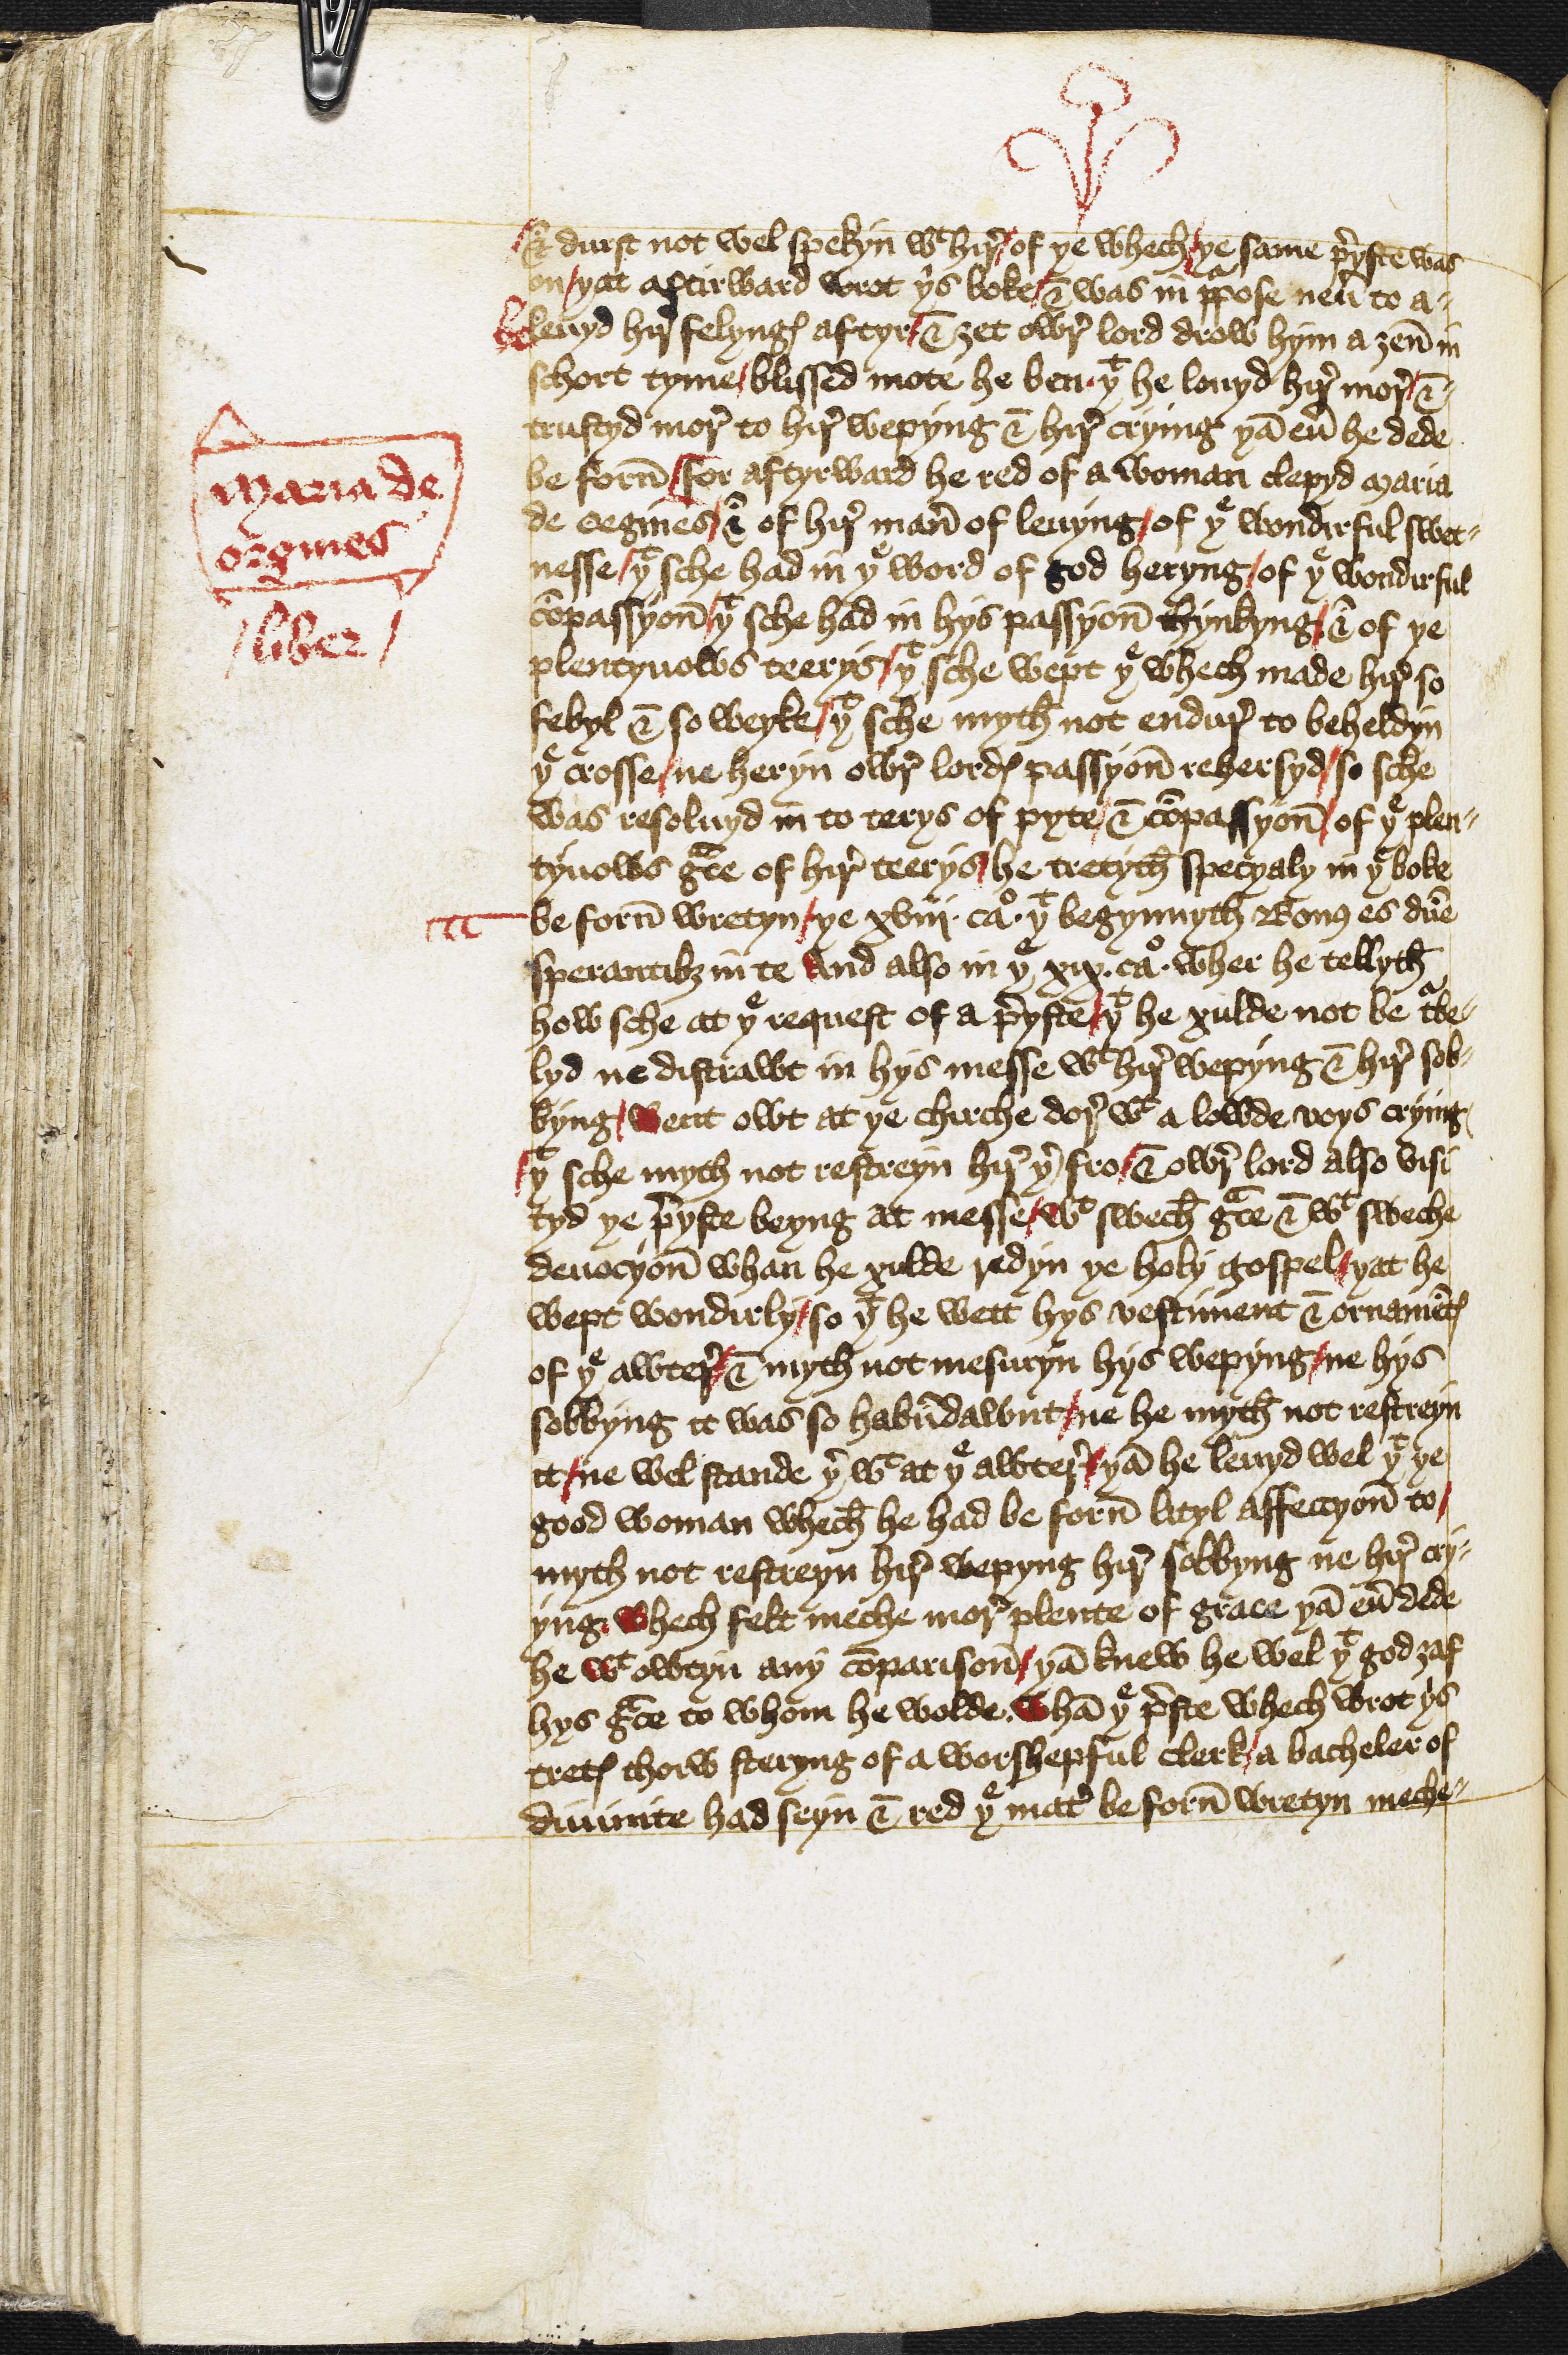 & durst not wel spekyn wt hir̛ / of ye whech / ye same p̛yste was
on / yat aftirward wrot y̛s boke / & was in p̱pose neư to a-
be leuyd hir̛ felyngꝭ aftyr / & ȝet owr̛ lord drow hym a ȝen̄ in
schort tyme / blissed mote he ben · yt he louyd hir̛ mor̛ / &
trustyd mor̛ to hir̛ wepyng & hir̛ crying yā eư he dede
be forn̄ / for aftyrward he red of a woman clepyd maria
de oegines / & of hir̛ man̛ of leuyng / of ye wondirful swet-
nesse / yt sche had in ye word of god heryng / of ye wondirful
cōpassyon̄ / yt sche had in hys passyon̄ thynkyng / & of ye
plentyuows teerys / yt sche wept ye whech made hir̛ so
febyl & so weyke / yt sche myth̄ not endur̛ to beheldyn
ye crosse / ne heryn owr̛ lordꝭ passyon̄ rehersyd / so sche
was resoluyd in to terys of pyte / & cōpassyon̄ / of ye plen-
tyuows gͣce of hir̛ teerys / he tretyth̄ specyaly in ye boke
be forn̄ wretyn / ye xviij · cao · yt begynnyth̄ Bonꝰ es dn̄e
sperantibȝ in te And also in ye xix · cao · wher he tellyth̄
how sche at ye request of a p̛yste / yt he xulde not be tͣbe-
lyd ne distrawt in hys messe wt hir̛ wepyng & hir̛ sob-
byng / went owt at ye chirche dor̛ wt a lowde voys crying
/ yt sche myth not restreyn hir̛ y̛ fro / & owr̛ lord also visi
tyd ye p̛yste beyng at messe / wt swech̄ gͣce & wt sweche
deuocyon̄ whan he xulde redyn ye holy gospel / yat he
wept wondirly / so yt he wett hys vestiment & ornamētꝭ
of ye awter̛ / & myth̄ not mesuryn hys wepyng / ne hys
sobbyng it was so habūdawnt / ne he myth̄ not restreyn
it / ne wel stande y̛ wt at ye awter̛ / yā he leuyd wel yt ye
good woman whech̄ he had be forn̄ lityl affeccyon̄ to /
myth not restreyn hir̛ wepyng hir̛ sobbyng ne hir̛ cry-
yng · whech felt meche mor̛ plente of grace yā eư dede
he wt owtyn any cōparison̄ / yā knew he wel yt god ȝaf
hys gͣce to whom he wolde · Whā ye p̛ste whech wrot y̛s
tretꝭ thorw steryng of a worshepful clerk / a bacheler of
diuinite had seyn & red ye mat̛ be forn̄ wretyn meche-
maria de
oegines
/ liber /